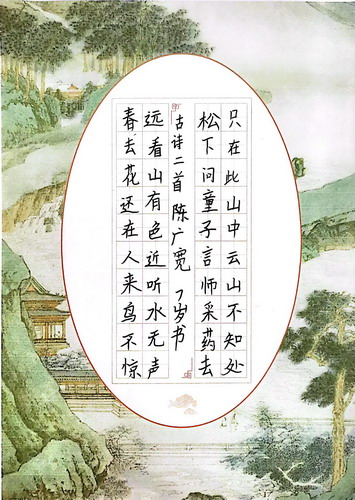 只在此山中云山不知处
松下问童子言师采药去
古诗二首 陈广宽 7岁书
远看山有色近听水无声
春去花还在人来鸟不惊